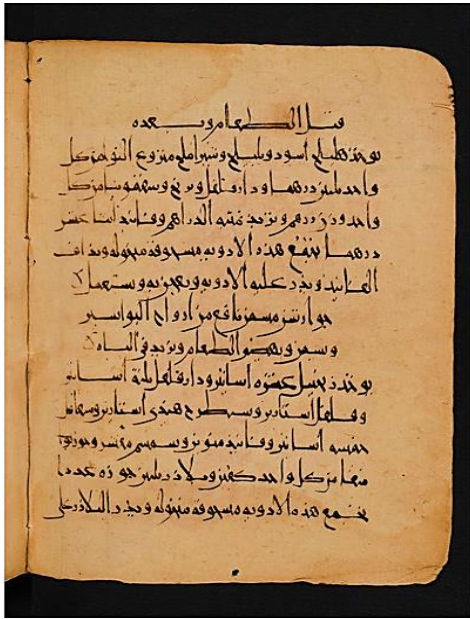 قبل الطعام وبعده
يوخذ هليلج اسود وبليلج وشيراملج منزوع النوا من كل
واحد ثلثين درهما ودارفلفل وبرنج من كل
واحد وزن درهم وتربد الدراهم وفانيد اثنا عشر
درهما تجمع هذه الادويه مسحوقه منخوله ويذاف
الفانيد ويذر عليه الادويه ويعجن به ويستعمل
جوارشن مسمن نافع من ارواح البواسير
ويسمن ويهضم الطعام ويزيد في الباه
يوخذ زنجبيل عشره اساتير ودارفلفل ثلثة اساتير
وفلفل استارين وشيطرج هندي استارين
خمسه اساتير وفانيد منوين وسمسم مقشر وجوز
منقا من كل واحد كفين وبلاذر ثلثين جوزه عددا
تجمع هذه الادويه مسحوقه منخوله ويذر البلاذر على